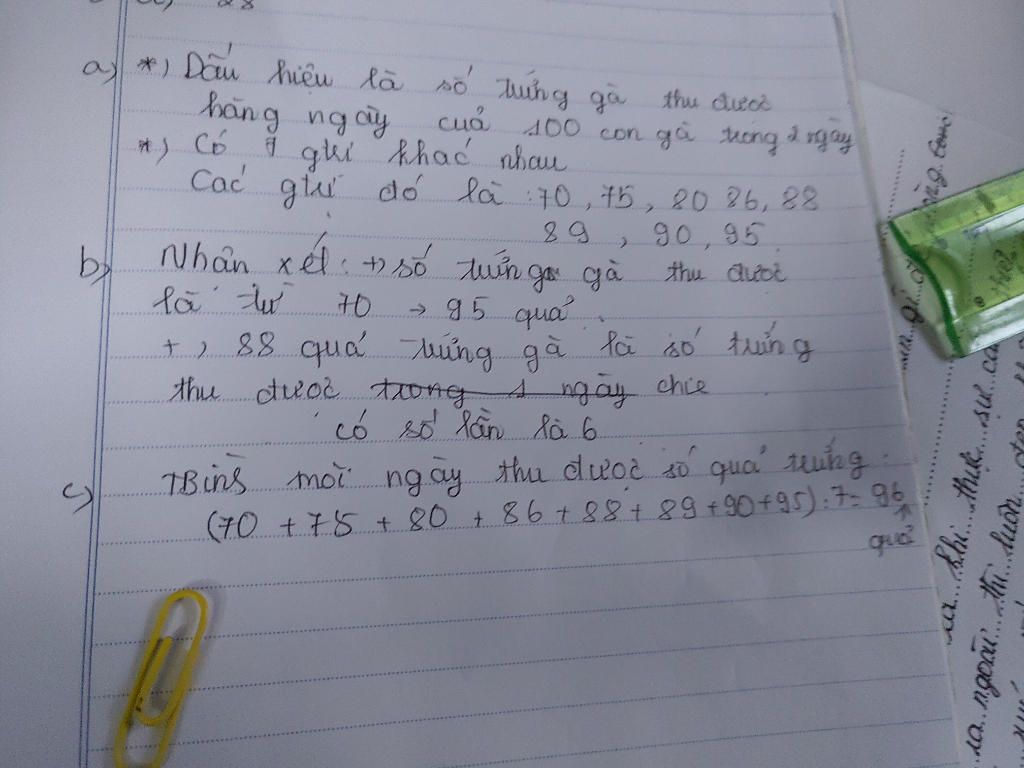 28
a) *) Dấu hiệu là số trứng gà thu được
hàng ngày của 100 con gà trong 2 ngày
*) Có 7 gtrị khác nhau
Các gtrị đó là : 70, 75, 80 86, 88
89, 90, 95
b) Nhận xét: +) số trứng gà thu được
là từ 70 → 95 quả.
+, 88 quả trứng gà là số trứng
thu được trong 1 ngày
có số lần là 6
c) TBình mỗi ngày thu được số quả trứng:
(70 + 75 + 80 + 86 + 88 + 89 + 90 + 95) : 7 = 96
quả